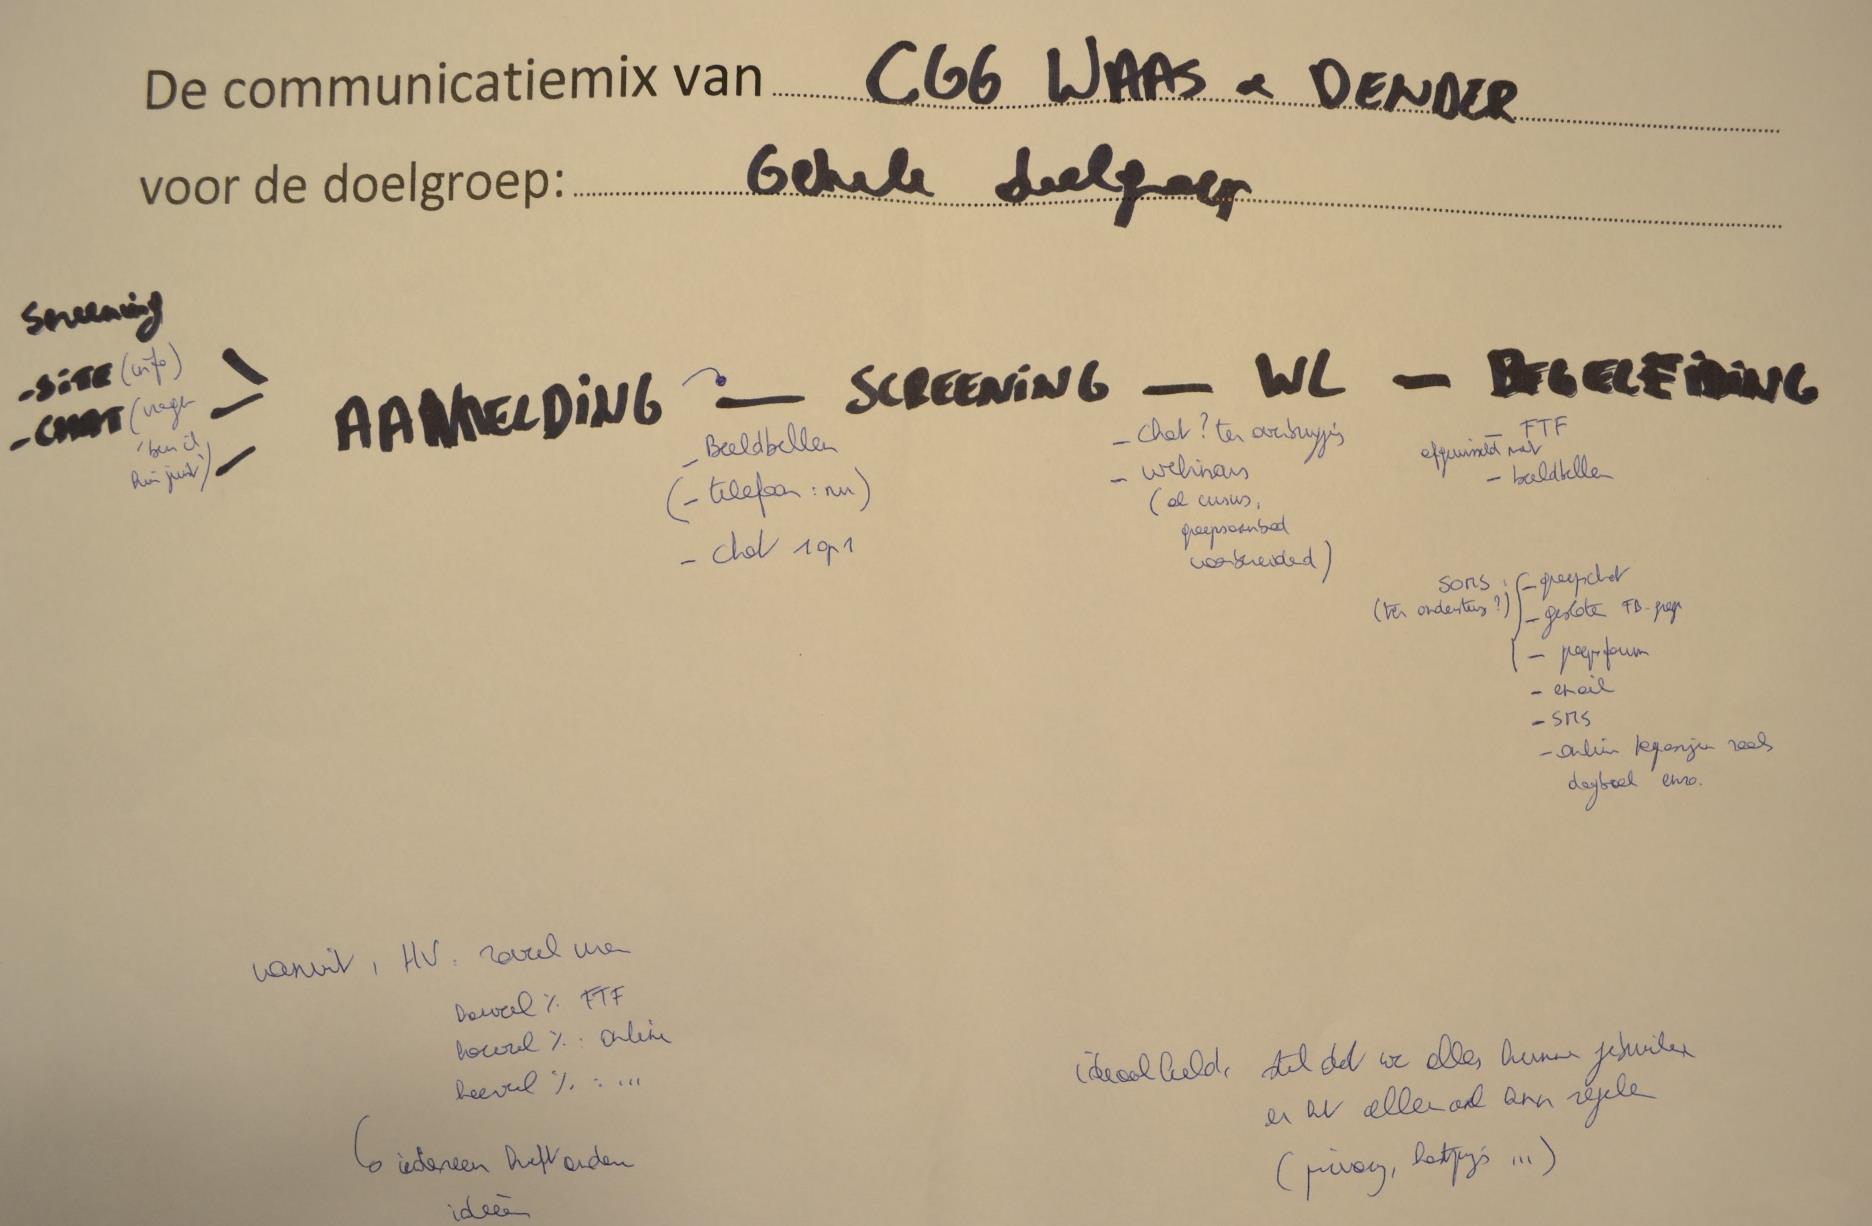 De communicatiemix van CGG WAAS & DENDER
voor de doelgroep: Gehele doelgroep
Screening
- SITE (info)
- CHAT (vragen
'ben ik
hier juist')
AANMELDING — SCREENING — WL — BEGELEIDING
- Beeldbellen
(- telefoon: nu)
- chat 1 op 1
- chat? ter overbrugging
- webinars
(al cursus,
groepsaanbod
voorbereidend)
- FTF
afgewisseld met
- beeldbellen
SOMS:
(ter ondersteun?)
- groepschat
- gesloten FB-groep
- groepsforum
- email
- SMS
- online toepassingen zoals
dagboek enzo.
vanuit HV: zoveel uren
hoeveel % FTF
hoeveel %: online
hoeveel %: ...
iedereen heeft andere
ideeën
ideaalbeeld: stel dat we alles kunnen gebruiken
en het allemaal kan regelen
(privacy, kostprijs ...)